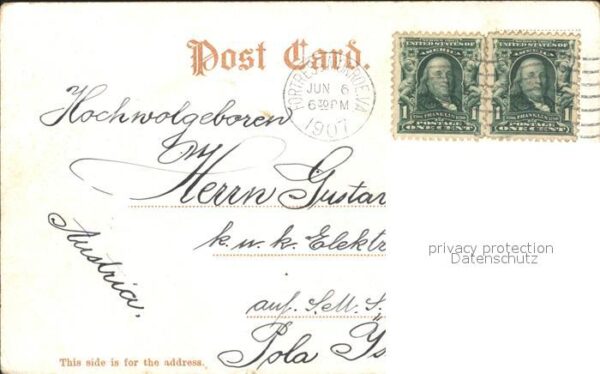 Post Card.
UNITED STATES OF AMERICA
1 FRANKLIN 1
POSTAGE
ONE CENT
UNITED STATES OF AMERICA
1 FRANKLIN 1
POSTAGE
ONE CENT
FORTRESS MONROE, VA
JUN 6
630PM
1907
Hochwolgeboren
Herrn Gustav
k. u. k. Elektr
auf S.M.S.
Pola Is
Austria.
privacy protection
Datenschutz
This side is for the address.